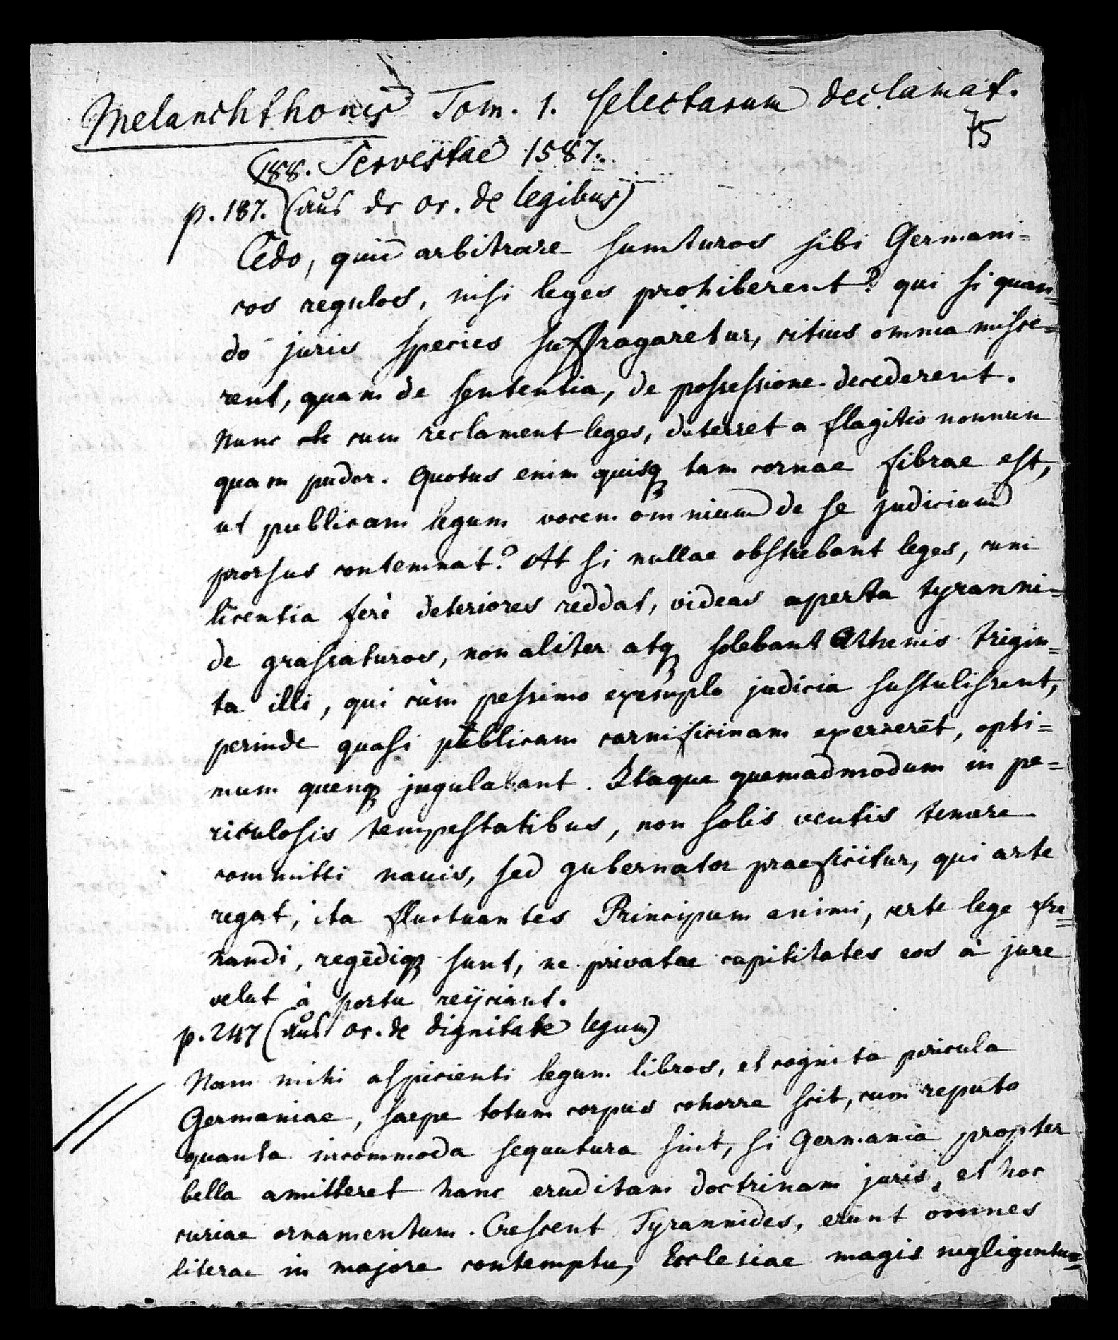 Melanchthonis Tom. 1. selectarum declamat.
75
188. Servestae 1587.
p. 187. (aus dr or. de legibus)
Cedo, quid arbitrare sumturos sibi Germani=
cos regulos, nisi leges prohiberent? qui si quan=
do juris species suffragaretur, citius omnia misce=
rent, quam de sententia, de possessione decederent.
Nunc cum reclament leges, deterret a flagitio nonnun
quam pudor. Quotus enim quisq tam corneae fibrae est,
ut publicam legum vocem omnium de se judicium
prorsus contemnat? At si nullae obstabant leges, cum
licentia ferè deteriores reddat, videas aperta tyranni=
de grassaturos, non aliter atq solebant Athenis trigin=
ta illi, qui cùm pessimo exemplo judicia sustulissent,
perinde quasi publicam carnificinam exercerēt, opti=
mum quenq jugulabant. Itaque quemadmodum in pe=
riculosis tempestatibus, non solis ventis temere
committi navis, sed gubernator praeficitur, qui arte
regat, ita fluctuantes Principum animi, certe lege fre=
nandi, regēdiq sunt, ne privatae cupiditates eos à jure
velut à portu reijciant.
p. 247 (aus or. de dignitate legum)
Nam mihi aspicienti legum libros, et cognita pericula
Germaniae, saepe totum corpus cohorrescit, cum reputo
quanta incommoda sequutura sint, si Germania propter
bella amitteret hanc eruditam doctrinam juris, et hoc
curiae ornamentum. Crescent Tyrannides, erunt omnes
literae in majore contemptu, Ecclesiae magis negligentu=